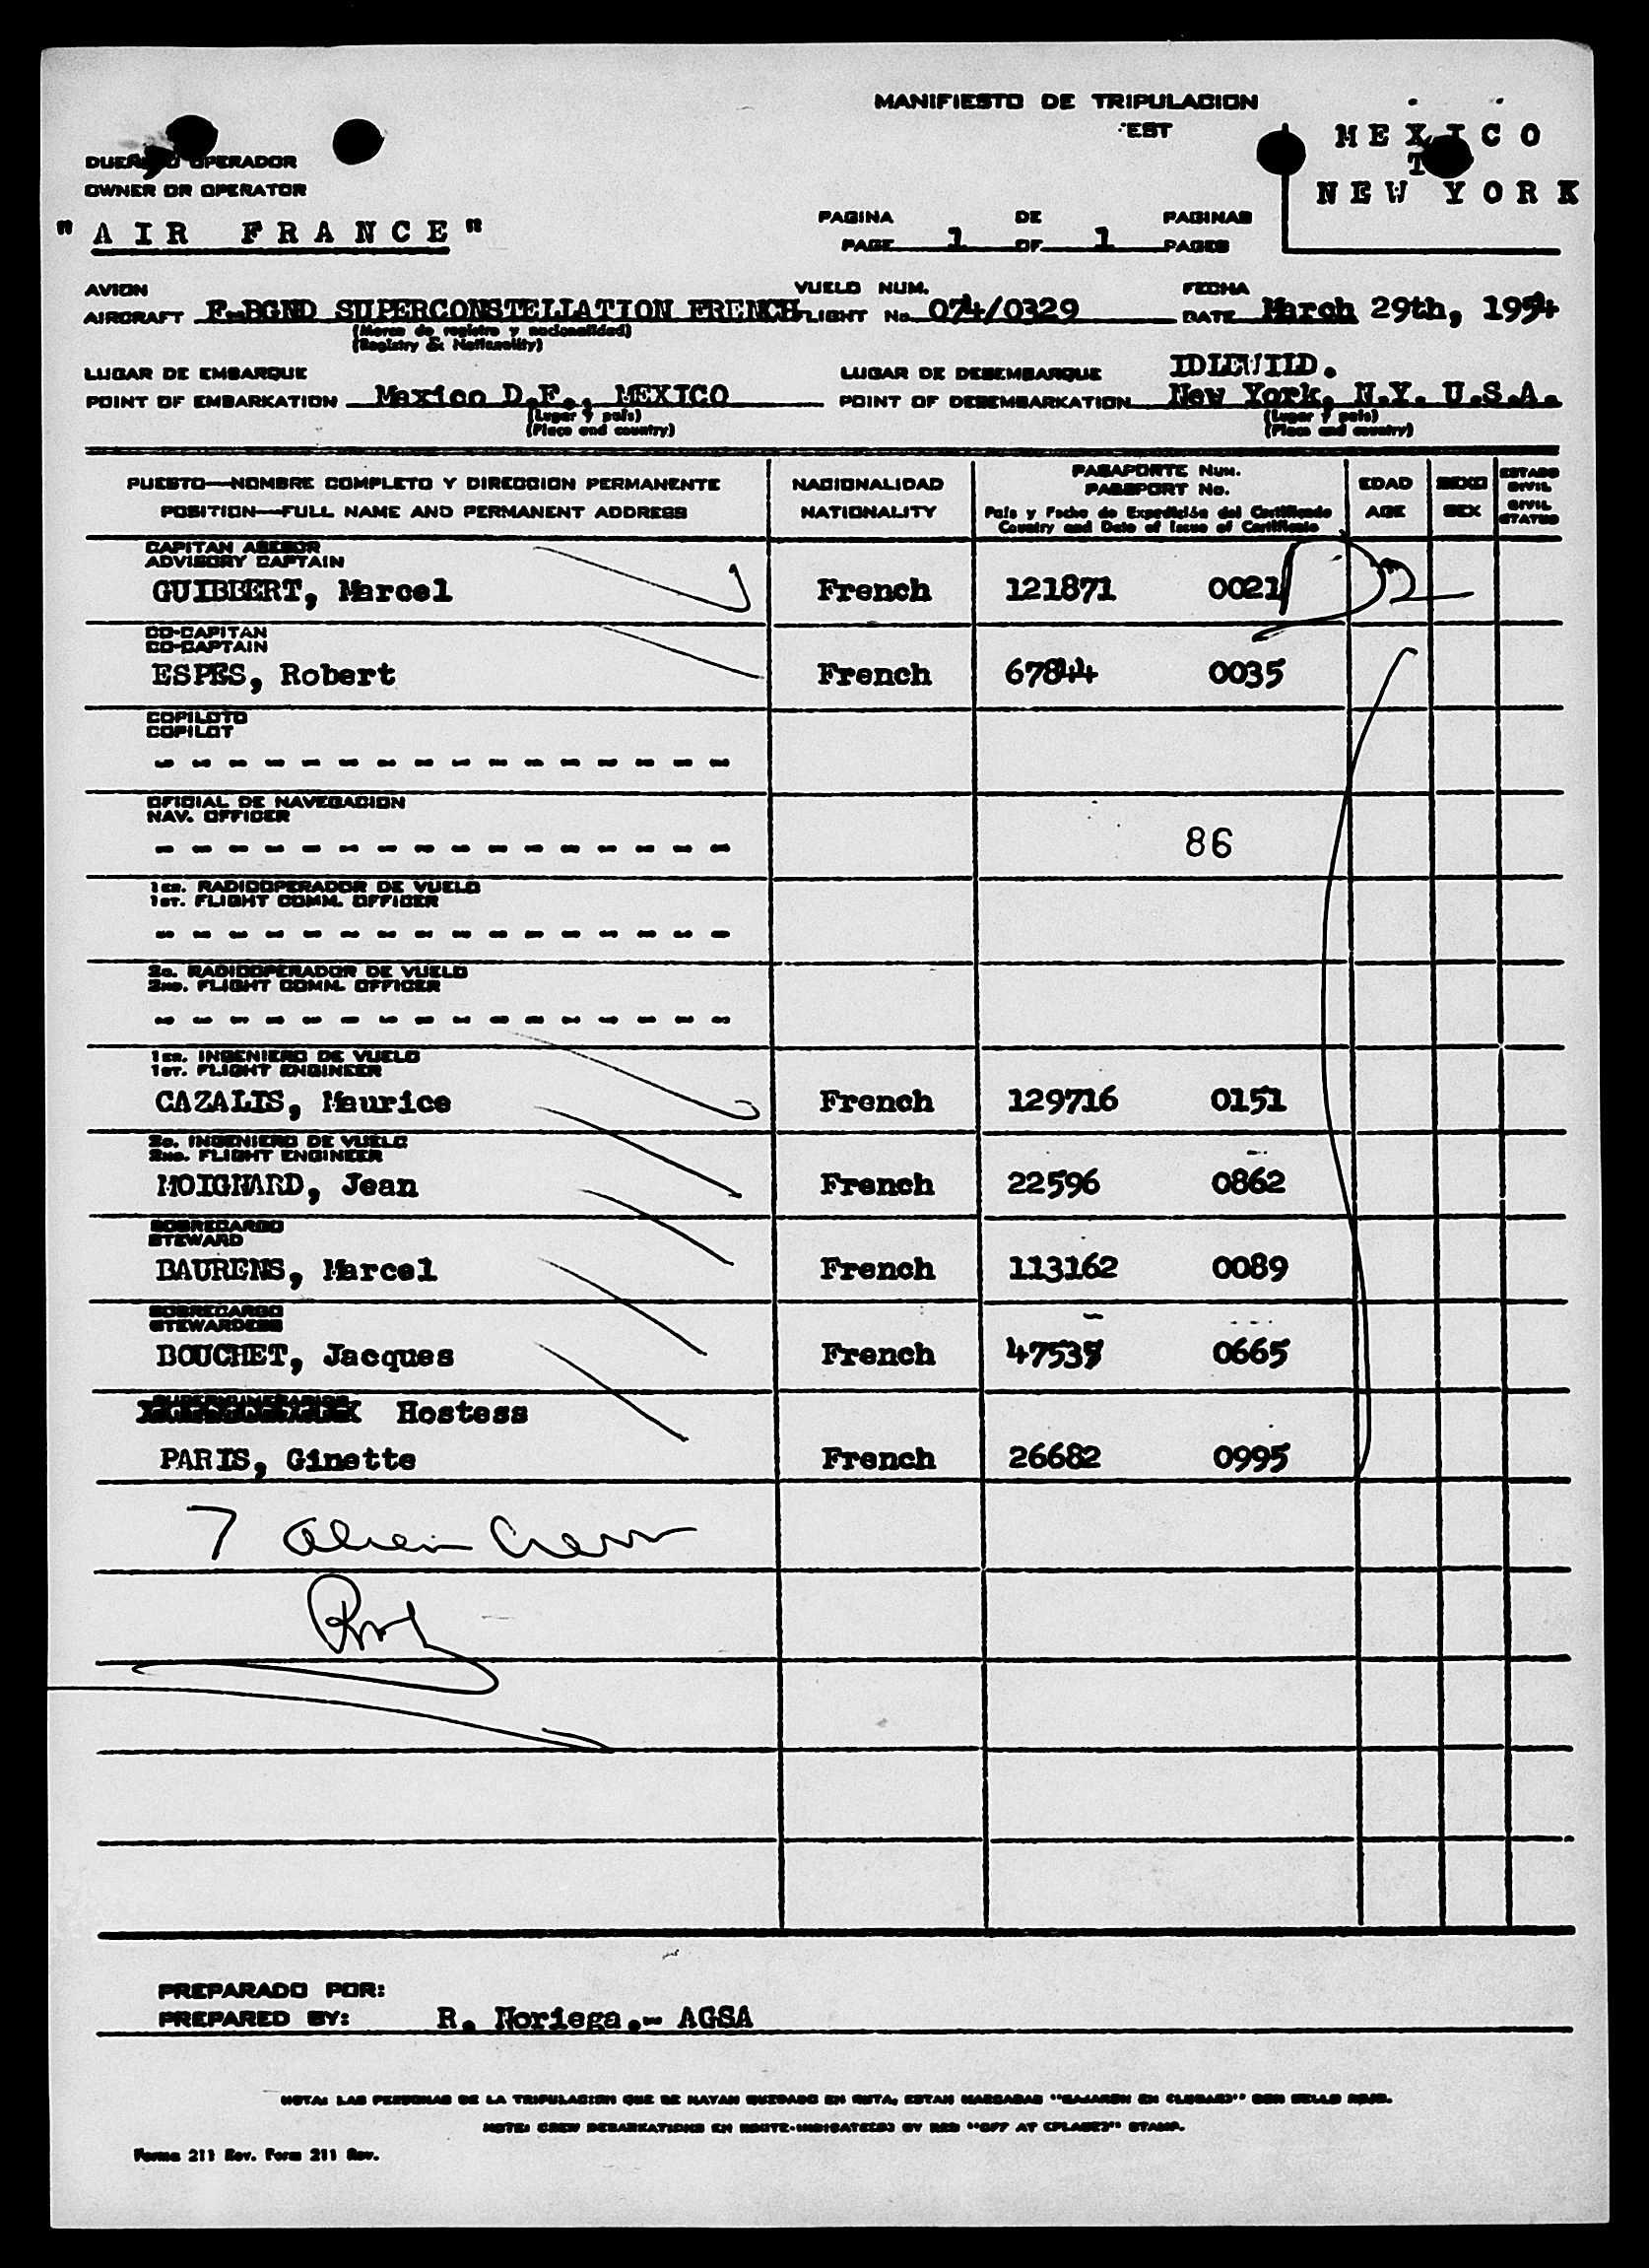 MANIFIESTO DE TRIPULACION
EST
MEXICO
NEW YORK
OPERADOR
OWNER OR OPERATOR
"AIR FRANCE"
PAGINA DE PAGINAS
PAGE 1 OF 1 PAGES
AVION VUELO NUM. FECHA
AIRCRAFT F-BGND SUPERCONSTELLATION FRENCH FLIGHT No 074/0329 DATE March 29th, 1954
(Marca de registro y nacionalidad)
(Registry & Nationality)
LUGAR DE EMBARQUE LUGAR DE DESEMBARQUE IDLEWILD.
POINT OF EMBARKATION Mexico D.F., MEXICO POINT OF DESEMBARKATION New York, N.Y. U.S.A.
(Lugar y país) (Lugar y país)
(Place and country) (Place and country)
PUESTO—NOMBRE COMPLETO Y DIRECCION PERMANENTE NACIONALIDAD PASAPORTE Num. EDAD SEXO ESTADO CIVIL
POSITION—FULL NAME AND PERMANENT ADDRESS NATIONALITY PASSPORT No. AGE SEX CIVIL STATUS
País y Fecha de Expedición del Certificado
Country and Date of Issue of Certificate
CAPITAN ASESOR
ADVISORY CAPTAIN
GUIBBERT, Marcel French 121871 0021
CO-CAPITAN
CO-CAPTAIN
ESPES, Robert French 67844 0035
COPILOTO
COPILOT
- - - - - - - - - - - - - - - -
OFICIAL DE NAVEGACION
NAV. OFFICER
- - - - - - - - - - - - - - - - 86
1er. RADIOOPERADOR DE VUELO
1st. FLIGHT COMM. OFFICER
- - - - - - - - - - - - - - - -
2o. RADIOOPERADOR DE VUELO
2nd. FLIGHT COMM. OFFICER
- - - - - - - - - - - - - - - -
1er. INGENIERO DE VUELO
1st. FLIGHT ENGINEER
CAZALIS, Maurice French 129716 0151
2o. INGENIERO DE VUELO
2nd. FLIGHT ENGINEER
MOIGNARD, Jean French 22596 0862
SOBRECARGO
STEWARD
BAURENS, Marcel French 113162 0089
SOBRECARGO
STEWARDESS
BOUCHET, Jacques French 47535 0665
Hostess
PARIS, Ginette French 26682 0995
7 alien Crew
PREPARADO POR:
PREPARED BY: R. Noriega.- AGSA
NOTA: LAS PERSONAS DE LA TRIPULACION QUE SE HAYAN QUEDADO EN RUTA, ESTAN MARCADAS "BAJARON EN (LUGAR)" CON SELLO ROJO.
NOTE: CREW DEBARKATIONS EN ROUTE-INDICATE(D) BY RED "OFF AT (PLACE)" STAMP.
Forma 211 Rev. Form 211 Rev.